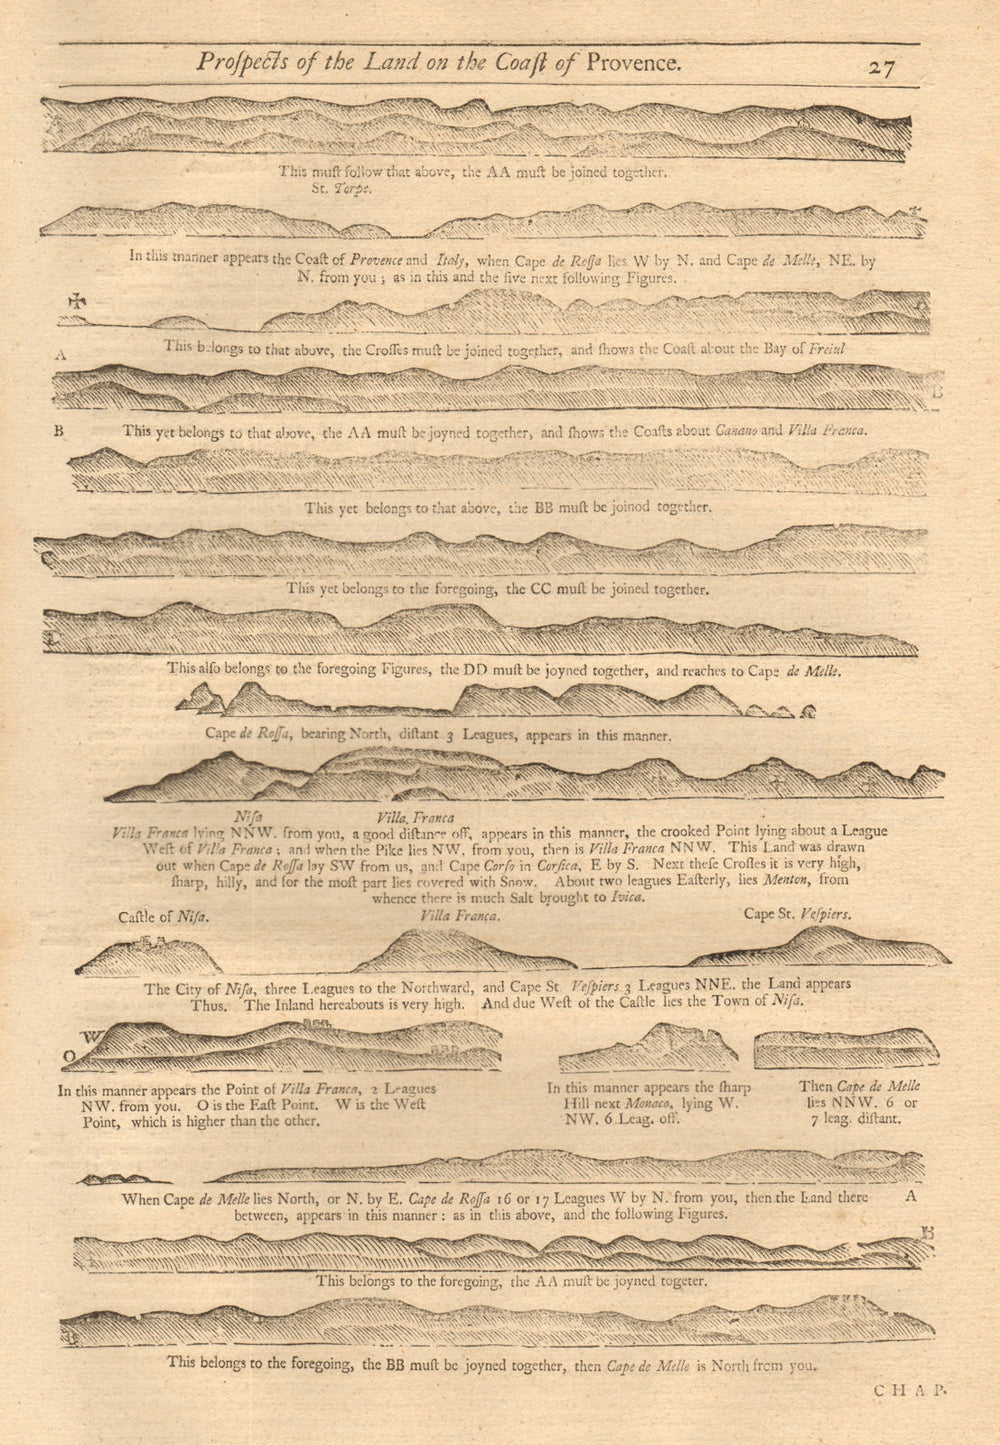 Proſpects of the Land on the Coaſt of Provence. 27
This muſt follow that above, the AA muſt be joined together.
St. Torpe.
In this manner appears the Coaſt of Provence and Italy, when Cape de Roſſa lies W by N. and Cape de Melle, NE. by
N. from you; as in this and the five next following Figures.
A
This belongs to that above, the Croſſes muſt be joined together, and ſhows the Coaſt about the Bay of Freiul
A
B
B This yet belongs to that above, the AA muſt be joyned together, and ſhows the Coaſts about Canano and Villa Franca.
This yet belongs to that above, the BB muſt be joinod together.
C
This yet belongs to the foregoing, the CC muſt be joined together.
This alſo belongs to the foregoing Figures, the DD muſt be joyned together, and reaches to Cape de Melle.
Cape de Roſſa, bearing North, diſtant 3 Leagues, appears in this manner.
Niſa Villa Franca
Villa Franca lying NNW. from you, a good diſtance off, appears in this manner, the crooked Point lying about a League
Weſt of Villa Franca; and when the Pike lies NW. from you, then is Villa Franca NNW. This Land was drawn
out when Cape de Roſſa lay SW from us, and Cape Corſo in Corſica, E by S. Next theſe Croſſes it is very high,
ſharp, hilly, and for the moſt part lies covered with Snow. About two leagues Eaſterly, lies Menton, from
whence there is much Salt brought to Ivica.
Caſtle of Niſa. Villa Franca. Cape St. Veſpiers.
The City of Niſa, three Leagues to the Northward, and Cape St. Veſpiers 3 Leagues NNE. the Land appears
Thus. The Inland hereabouts is very high. And due Weſt of the Caſtle lies the Town of Niſa.
W
O
In this manner appears the Point of Villa Franca, 2 Leagues
NW. from you. O is the Eaſt Point. W is the Weſt
Point, which is higher than the other.
In this manner appears the ſharp
Hill next Monaco, lying W.
NW. 6 Leag. off.
Then Cape de Melle
lies NNW. 6 or
7 leag. diſtant.
When Cape de Melle lies North, or N. by E. Cape de Roſſa 16 or 17 Leagues W by N. from you, then the Land there A
between, appears in this manner: as in this above, and the following Figures.
B
This belongs to the foregoing, the AA muſt be joyned togeter.
B
This belongs to the foregoing, the BB muſt be joyned together, then Cape de Melle is North from you.
CHAP.